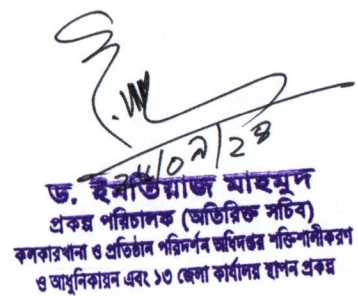 ড. ইমতিয়াজ মাহমুদ
প্রকল্প পরিচালক (অতিরিক্ত সচিব)
কলকারখানা ও প্রতিষ্ঠান পরিদর্শন অধিদপ্তর শক্তিশালীকরণ
ও আধুনিকায়ন এবং ১৩ জেলা কার্যালয় স্থাপন প্রকল্প